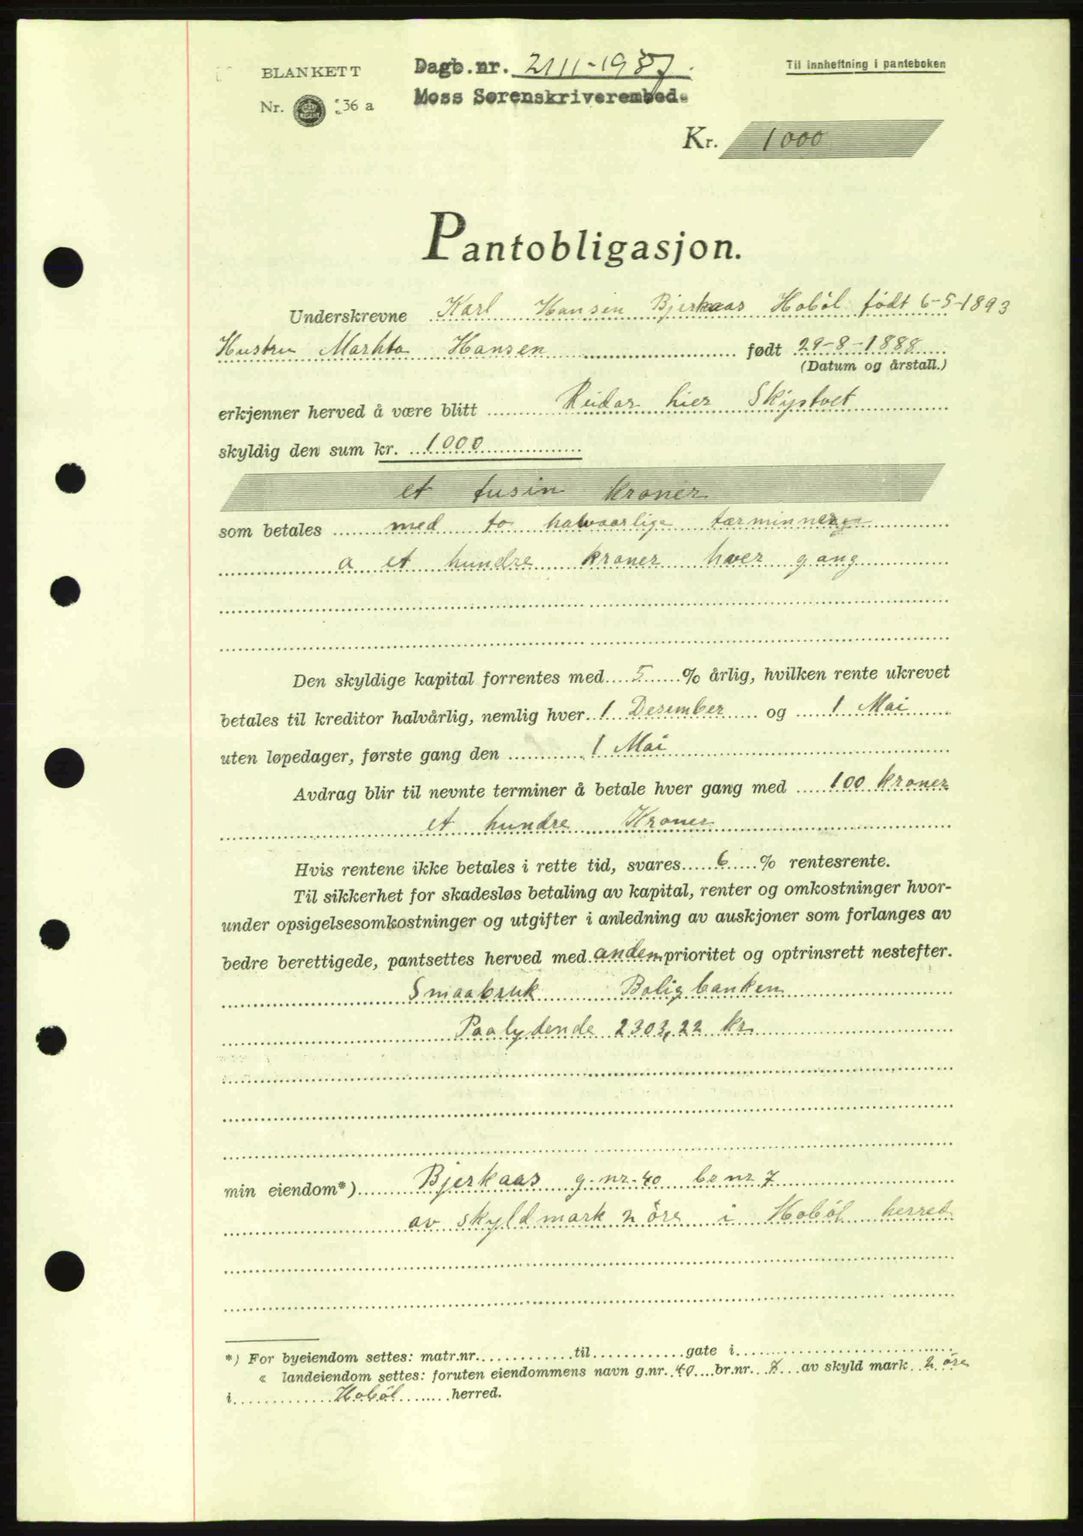 BLANKETT
Nr. 36 a
Dagb.nr. 2111-1937.
Moss Sorenskriverembede
Til innheftning i panteboken
Kr. 1000
Pantobligasjon.
Underskrevne Karl Hansen Bjerkaas Hobøl født 6-5-1893
Hustru Marhta Hansen født 29-8-1888
(Datum og årstall.)
erkjenner herved å være blitt Reidar hier
skyldig den sum kr. 1000
et tusin kroner
som betales med to halvaarlige tærminner
a et hundre kroner hver gang
Den skyldige kapital forrentes med 5 % årlig, hvilken rente ukrevet
betales til kreditor halvårlig, nemlig hver 1 Desember og 1 Mai
uten løpedager, første gang den 1 Mai
Avdrag blir til nevnte terminer å betale hver gang med 100 kroner
et hundre Kroner
Hvis rentene ikke betales i rette tid, svares 6 % rentesrente.
Til sikkerhet for skadesløs betaling av kapital, renter og omkostninger hvor-
under opsigelsesomkostninger og utgifter i anledning av auskjoner som forlanges av
bedre berettigede, pantsettes herved med anden prioritet og optrinsrett nestefter.
Smaabruk Boligbanken
Paalydende 2303,22 kr
min eiendom*) Bjerkaas g-nr-40 br nr 7
av skyldmark 2 öre i Hoböl herred
*) For byeiendom settes: matr.nr. til gate i
« landeiendom settes: foruten eiendommens navn g.nr. 40 br.nr. 7 av skyld mark 2 öre
i Hoböl herred.